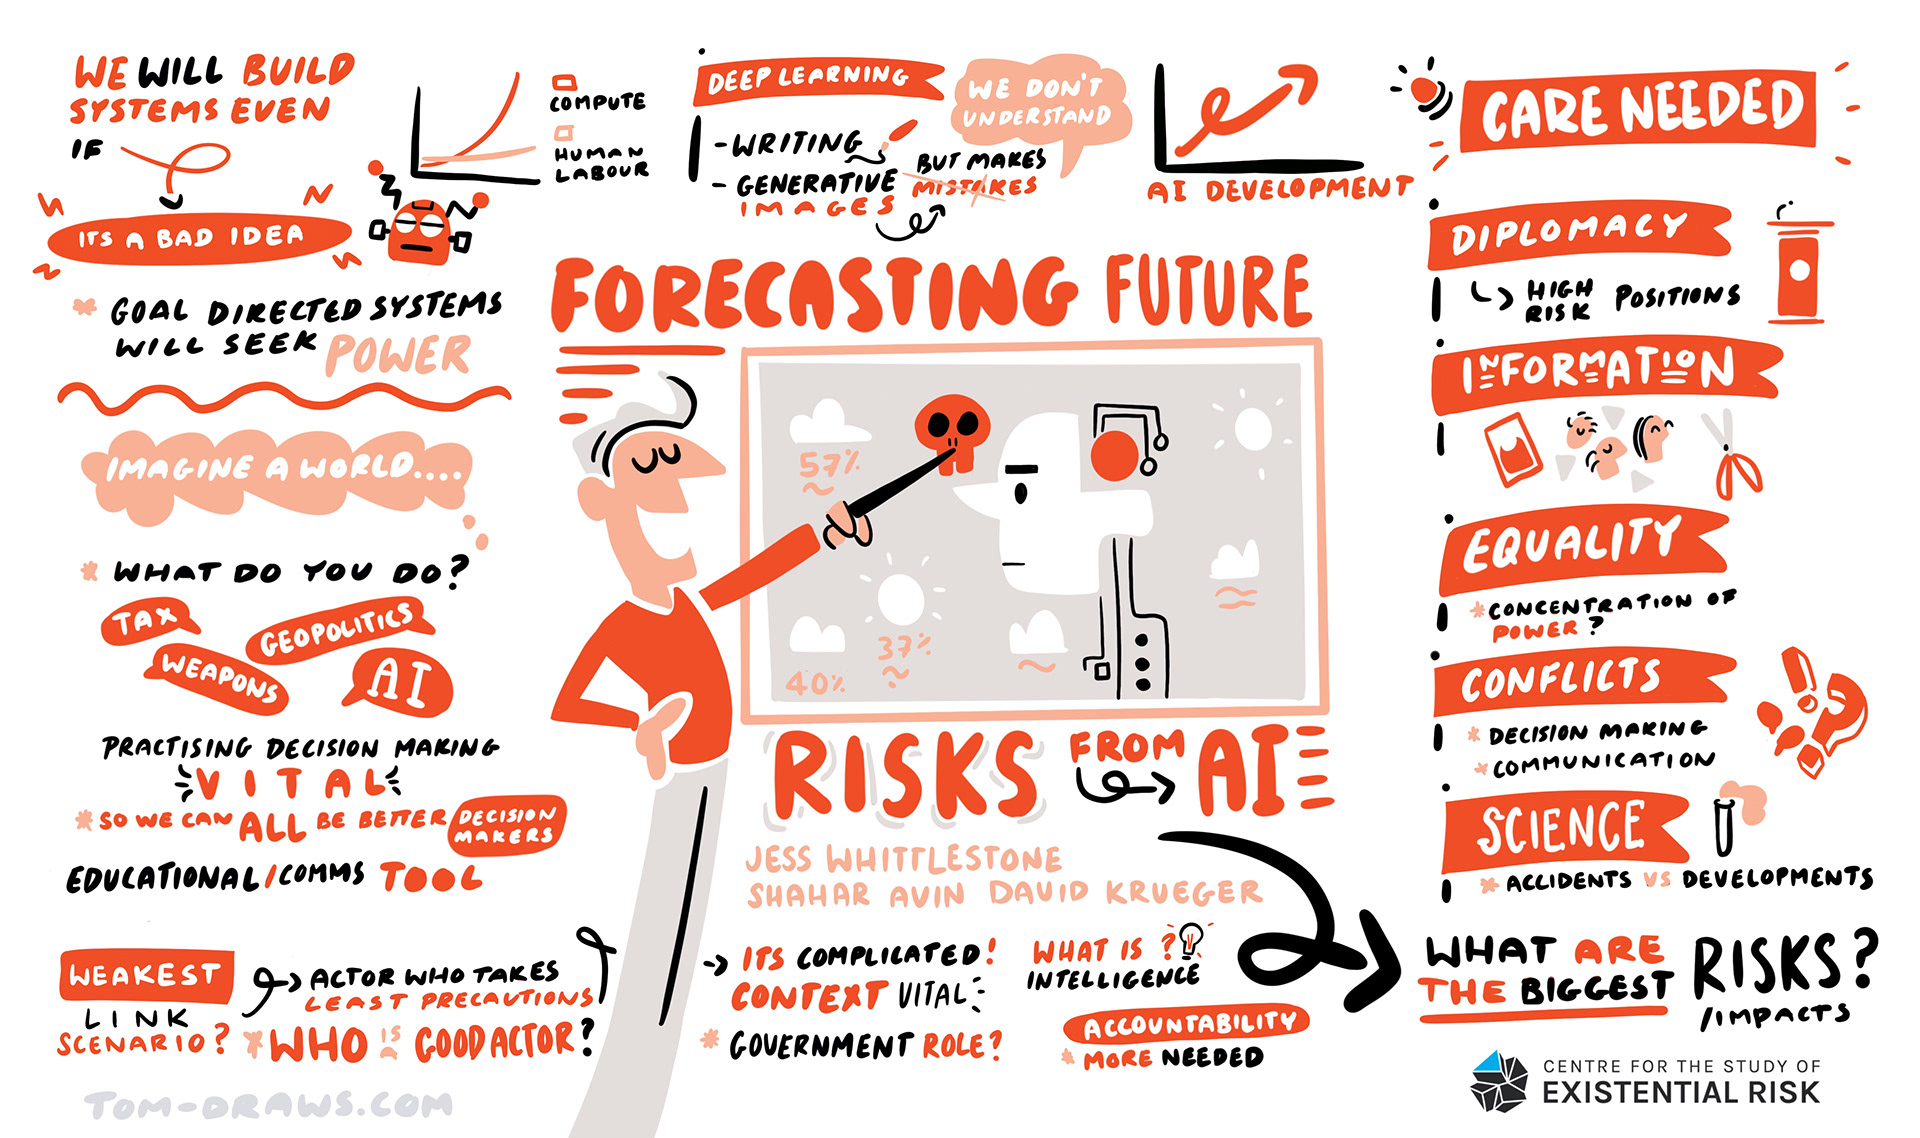 WE WILL BUILD
SYSTEMS EVEN
IF
ITS A BAD IDEA
COMPUTE
HUMAN
LABOUR
* GOAL DIRECTED SYSTEMS
WILL SEEK POWER
IMAGINE A WORLD....
* WHAT DO YOU DO?
TAX
GEOPOLITICS
WEAPONS
AI
PRACTISING DECISION MAKING
VITAL
* SO WE CAN ALL BE BETTER DECISION
MAKERS
EDUCATIONAL/COMMS TOOL
WEAKEST
LINK
SCENARIO?
ACTOR WHO TAKES
LEAST PRECAUTIONS
* WHO IS A GOOD ACTOR?
TOM-DRAWS.COM
DEEP LEARNING
- WRITING
- GENERATIVE
IMAGES
BUT MAKES
MISTAKES
WE DON'T
UNDERSTAND
AI DEVELOPMENT
FORECASTING FUTURE
57%
37%
40%
RISKS FROM AI
JESS WHITTLESTONE
SHAHAR AVIN DAVID KRUEGER
ITS COMPLICATED!
CONTEXT VITAL
* GOVERNMENT ROLE?
WHAT IS ?
INTELLIGENCE
ACCOUNTABILITY
* MORE NEEDED
CARE NEEDED
DIPLOMACY
HIGH
RISK POSITIONS
INFORMATION
EQUALITY
* CONCENTRATION OF
POWER?
CONFLICTS
* DECISION MAKING
* COMMUNICATION
SCIENCE
* ACCIDENTS VS DEVELOPMENTS
WHAT ARE
THE BIGGEST RISKS?
/IMPACTS
CENTRE FOR THE STUDY OF
EXISTENTIAL RISK